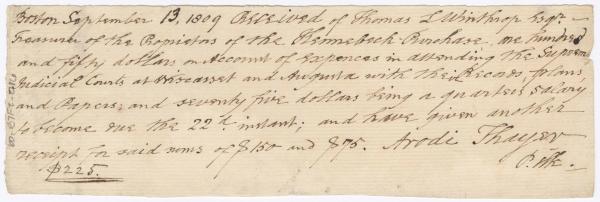 Boston September 13, 1809 Received of Thomas L Winthrop Esqr.
Treasurer of the Proprietors of the Kennebeck Purchase, one hundred
and fifty dollars on Account of Expences in attending the Supreme
Judicial Courts at Wiscasset and Augusta with their Records, plans,
and Papers; and seventy five dollars being a quarters salary
to become due the 22d. instant; and have given another
receipt for said sums of $150 and $75. Arodi Thayer
$225.